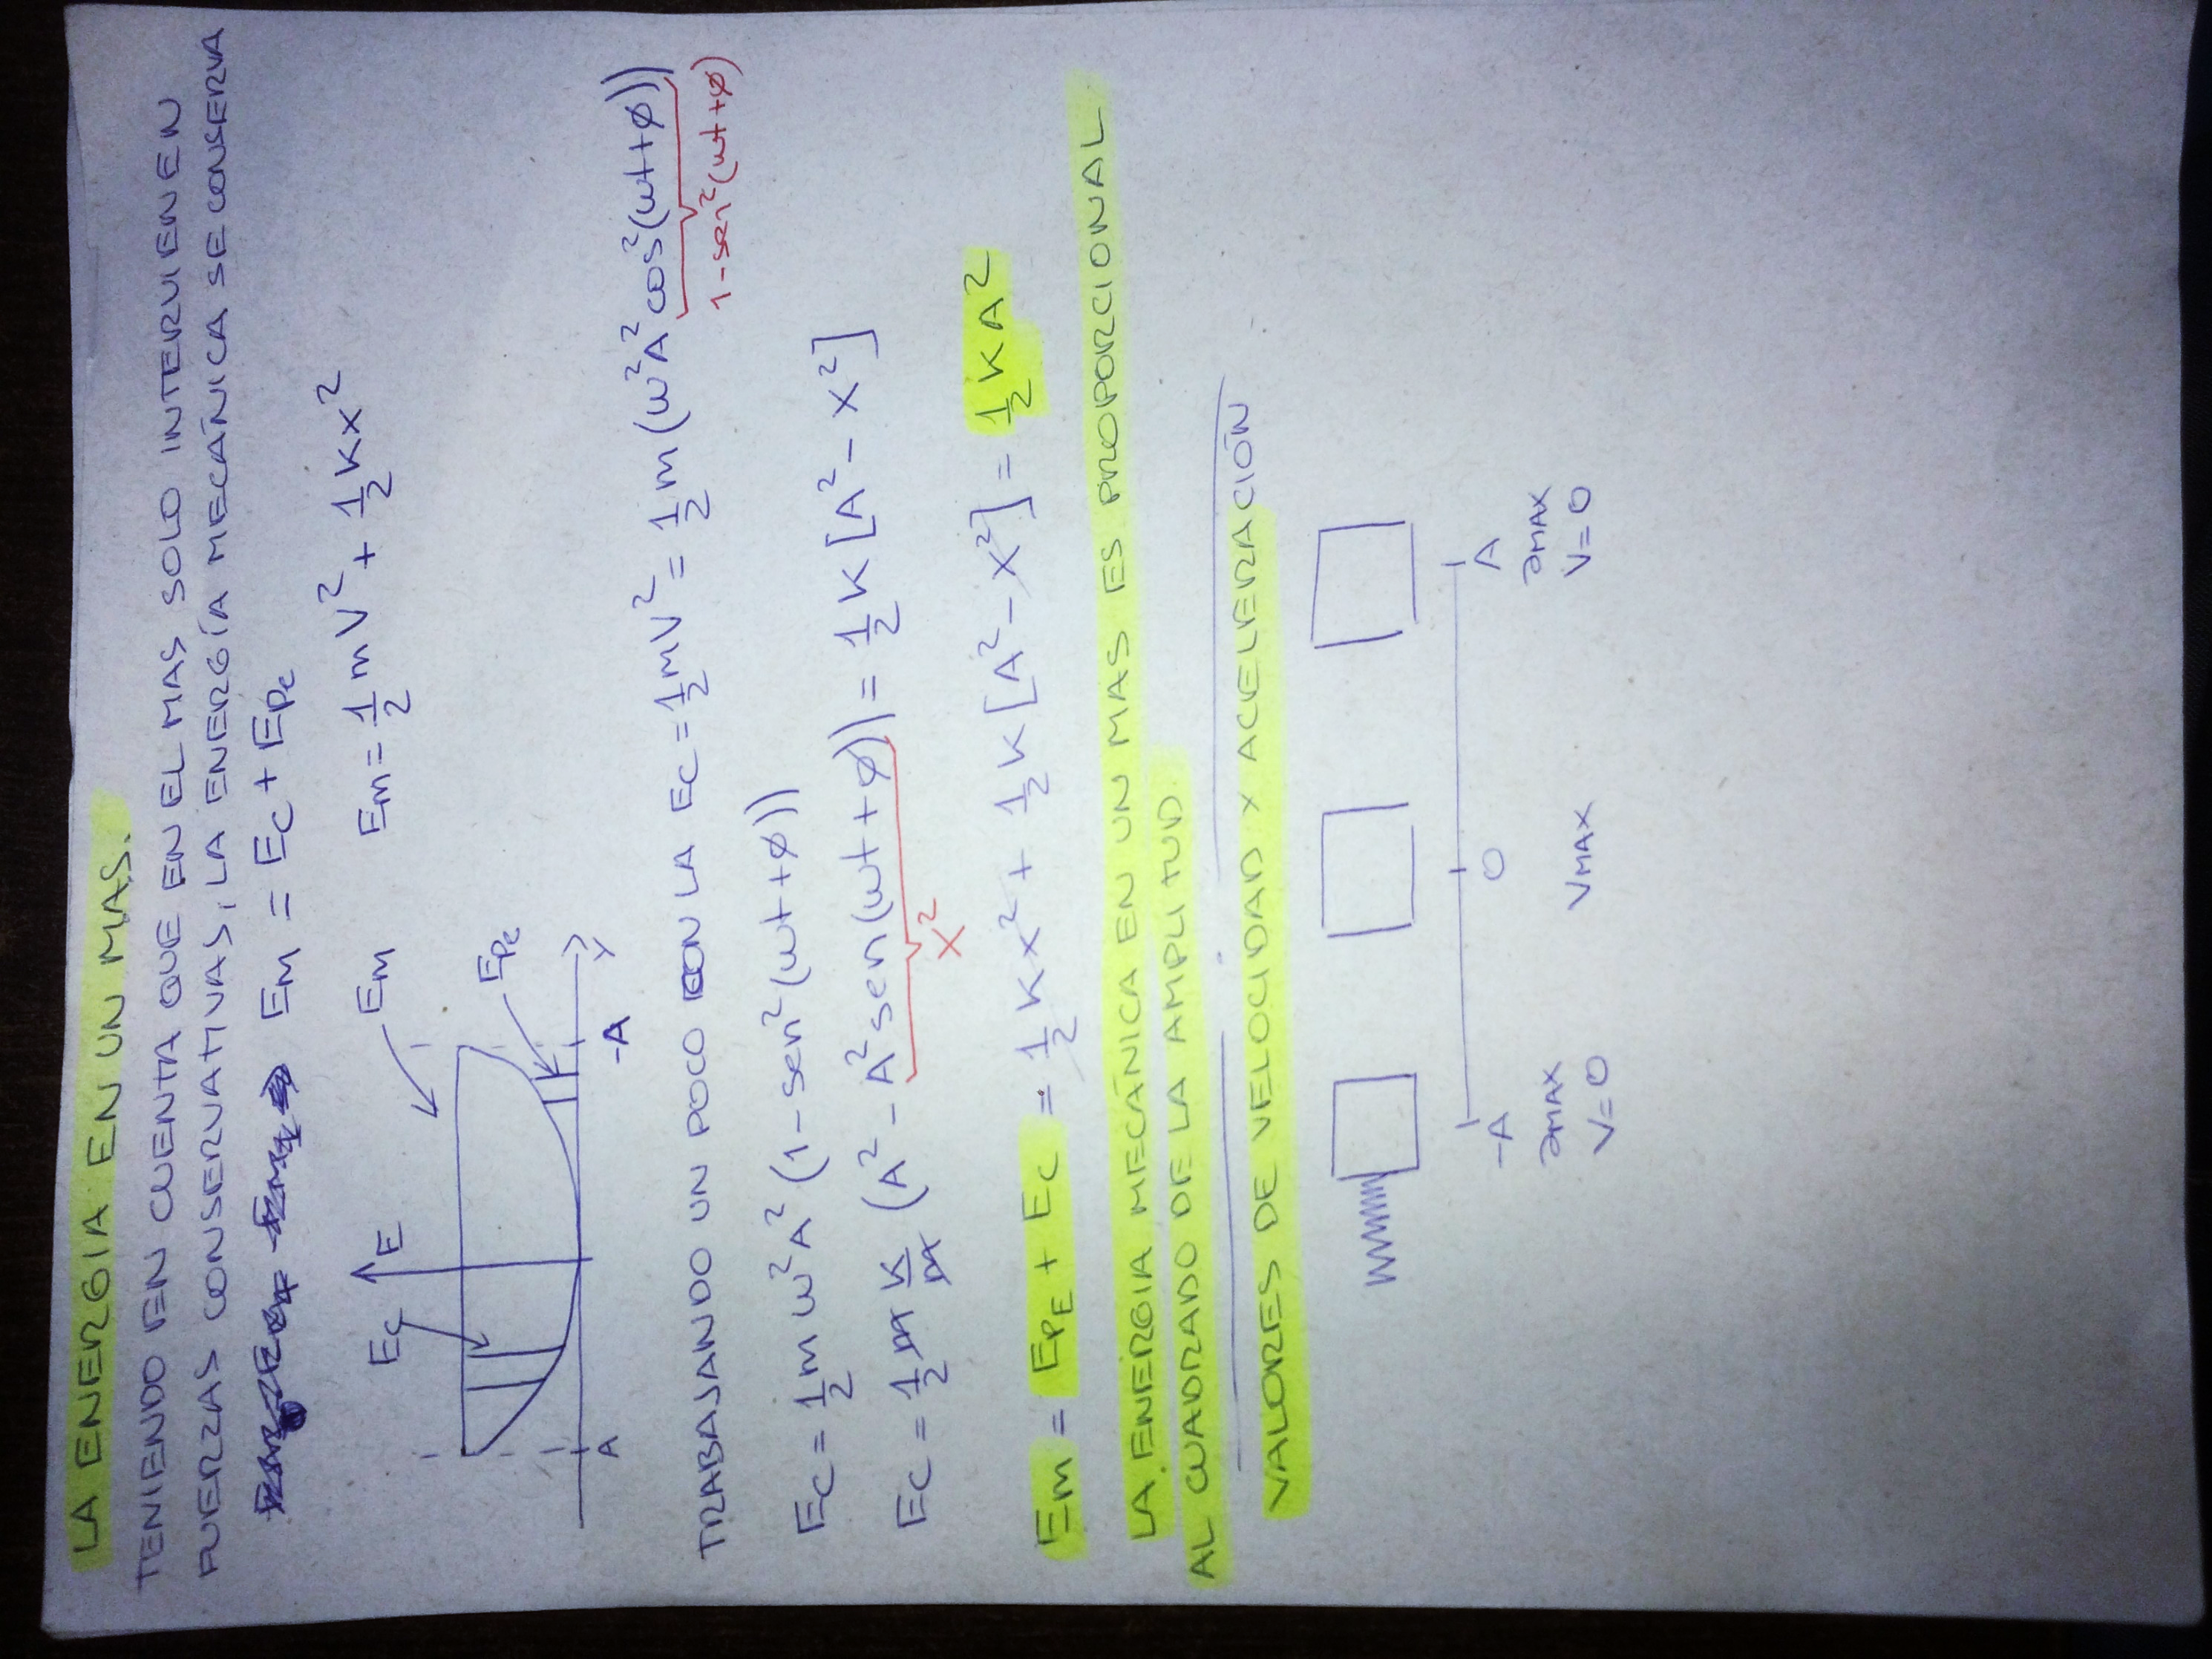 LA ENERGIA EN UN MAS.
TENIENDO EN CUENTA QUE EN EL MAS SOLO INTERVIENEN
FUERZAS CONSERVATIVAS, LA ENERGÍA MECÁNICA SE CONSERVA
Em = Ec + Epe
Em = 1/2 mV² + 1/2 Kx²
Ec E Em
Epe
A -A x
TRABAJANDO UN POCO CON LA Ec = 1/2 mV² = 1/2 m (ω²A² cos²(ωt+ø))
1-sen²(ωt+ø)
Ec = 1/2 m ω²A² (1-sen²(ωt+ø))
Ec = 1/2 m K/m (A² - A² sen(ωt+ø)) = 1/2 K [A² - x²]
x²
Em = EPE + Ec = 1/2 Kx² + 1/2 K [A² - x²] = 1/2 KA²
LA ENERGIA MECÁNICA EN UN MAS ES PROPORCIONAL
AL CUADRADO DE LA AMPLITUD.
VALORES DE VELOCIDAD Y ACELERACIÓN
-A O A
amax Vmax amax
V=0 V=0